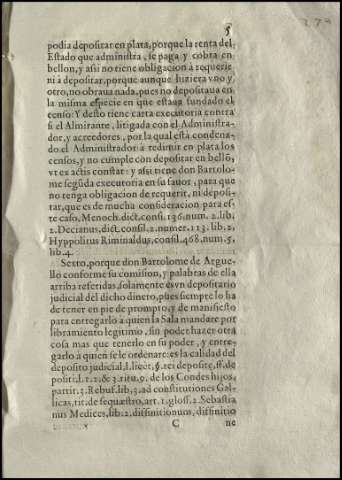 5
podia depositar en plata, porque la renta del
Estado que administra, se paga y cobra en
bellon, y assi no tiene obligacion à requerir
ni à depositar, porque aunque huziera vno y
otro, no obraua nada, pues no depositaua en
la misma especie en que estaua fundado el
censo: Y desto tiene carta executoria contra
si el Almirante, litigada con el Administra-
dor, y acreedores, por la qual està condena-
do el Administrador à redimir en plata los
censos, y no cumple con depositar en bellõ,
vt ex actis constat: y assi tiene don Bartolo-
me segũda executoria en su fauor, para que
no tenga obligacion de requerir, ni deposi-
tar, que es de mucha consideracion para es-
te caso, Menoch. dict. consi. 136. num. 2. lib.
2. Decianus, dict. consil. 2. numer. 113. lib. 2.
Hyppolitus Riminaldus, consil. 468. num. 5.
lib. 4.
Sexto, porque don Bartolome de Argue-
llo conforme su comision, y palabras de ella
arriba referidas, solamente es vn depositario
judicial del dicho dinero, pues siempre lo ha
de tener en pie de prompto, y de manifiesto
para entregarlo à quien la Sala mandare por
libramiento legitimo, sin poder hazer otra
cosa mas que tenerlo en su poder, y entre-
garlo à quien se le ordenare: es la calidad del
deposito judicial, l. licet, §. rei deposite, ff. de
positi, l. 1. 2. & 3. titu. 9. de los Condes hijos,
partit. 3. Rebuf. lib. 3. ad constitutiones Gal-
licas, tit. de sequæstro, art. 1. gloss. 2. Sebastia
nus Medices, lib. 2. diffinitionum, diffinitio
C ne